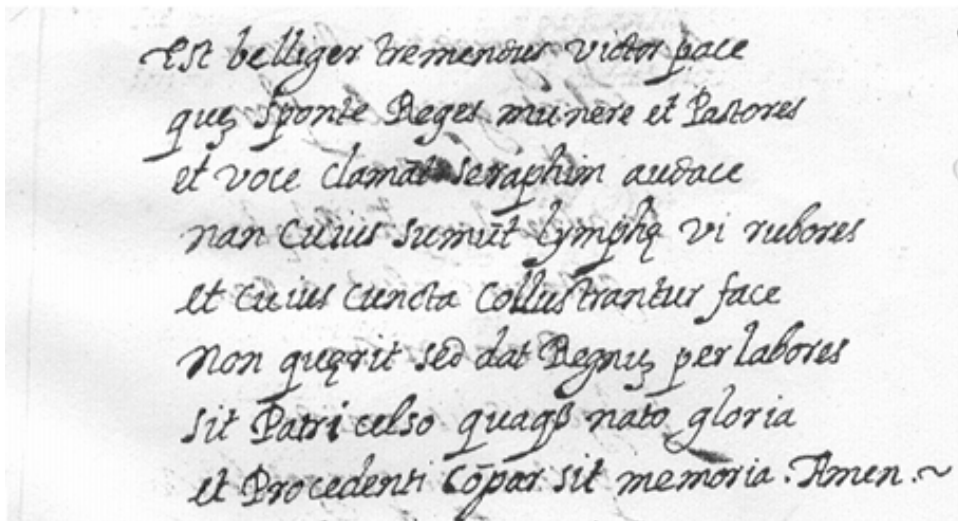 Est belliger tremendus victor pace
quē sponte Reges munere et Pastores
et voce clamāt seraphim audace
nan Cuius sumūt lymphę vi rubores
et cuius cuncta collustrantur face
Non quęrit sed dat Regnuȝ per labores
sit Patri celso nato gloria
et Procedenti Cōpar sit memoria. Amen.~